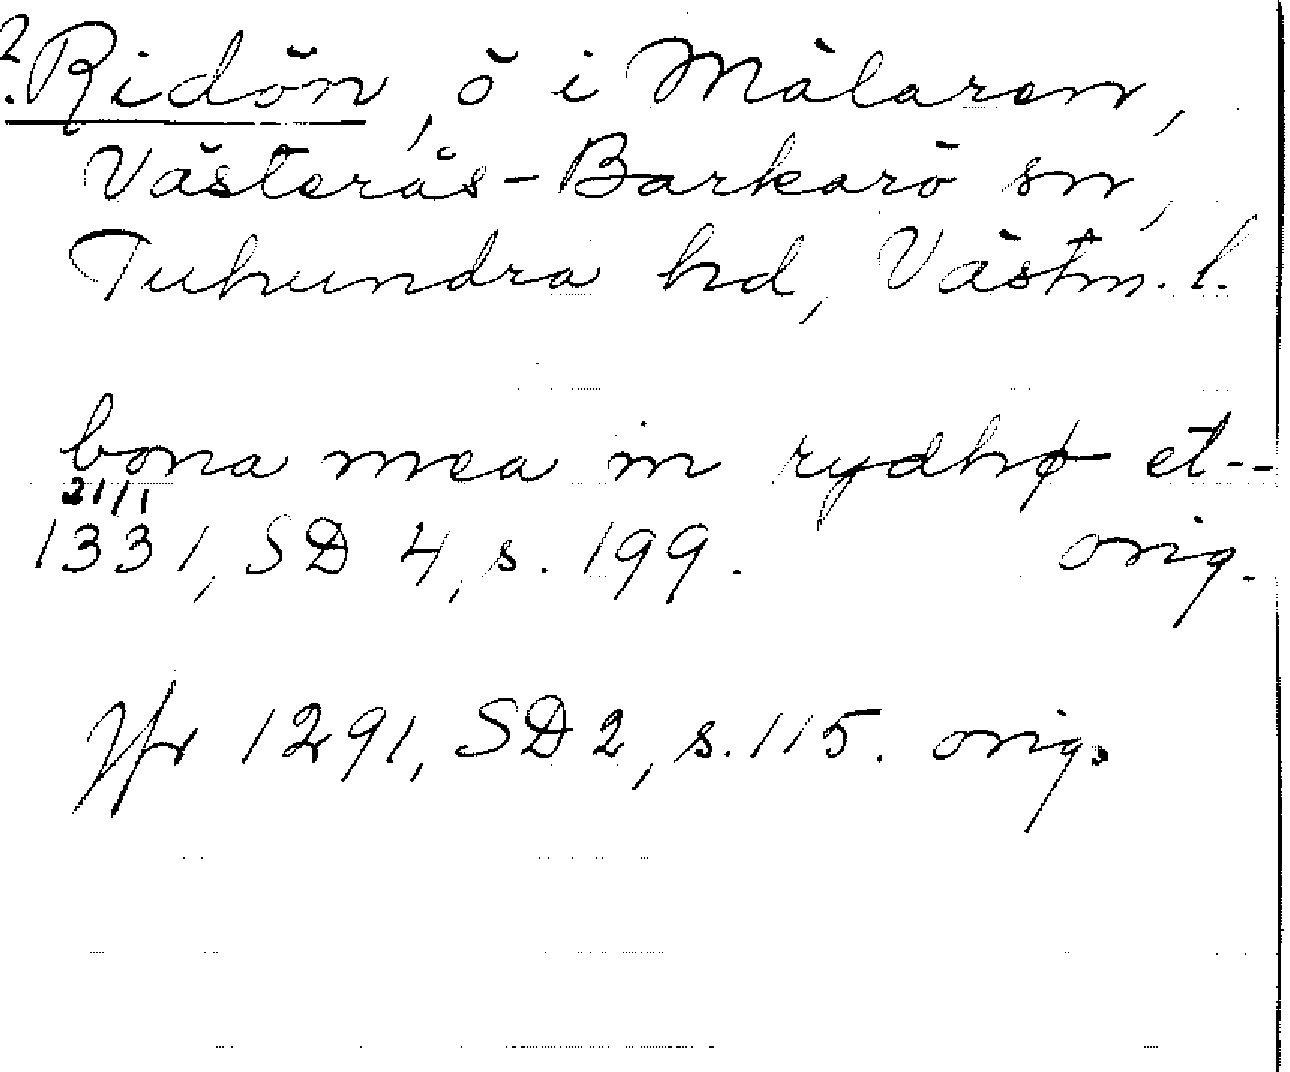 ?. Ridön, ö i Mälaren,
Västerås-Barkarö sn,
Tuhundra hd, Västm. l.
bona mea in rydhø et--
21/1
1331, SD 4, s. 199. orig.
Jfr 1291, SD 2, s. 115. orig.